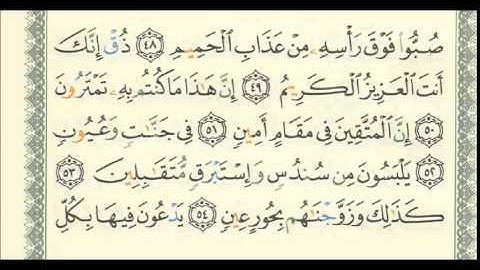 صُبُّوا۟ فَوْقَ رَأْسِهِۦ مِنْ عَذَابِ ٱلْحَمِيمِ ٤٨ ذُقْ إِنَّكَ
أَنتَ ٱلْعَزِيزُ ٱلْكَرِيمُ ٤٩ إِنَّ هَٰذَا مَا كُنتُم بِهِۦ تَمْتَرُونَ
٥٠ إِنَّ ٱلْمُتَّقِينَ فِى مَقَامٍ أَمِينٍ ٥١ فِى جَنَّٰتٍ وَعُيُونٍ
٥٢ يَلْبَسُونَ مِن سُندُسٍ وَإِسْتَبْرَقٍ مُّتَقَٰبِلِينَ ٥٣
كَذَٰلِكَ وَزَوَّجْنَٰهُم بِحُورٍ عِينٍ ٥٤ يَدْعُونَ فِيهَا بِكُلِّ